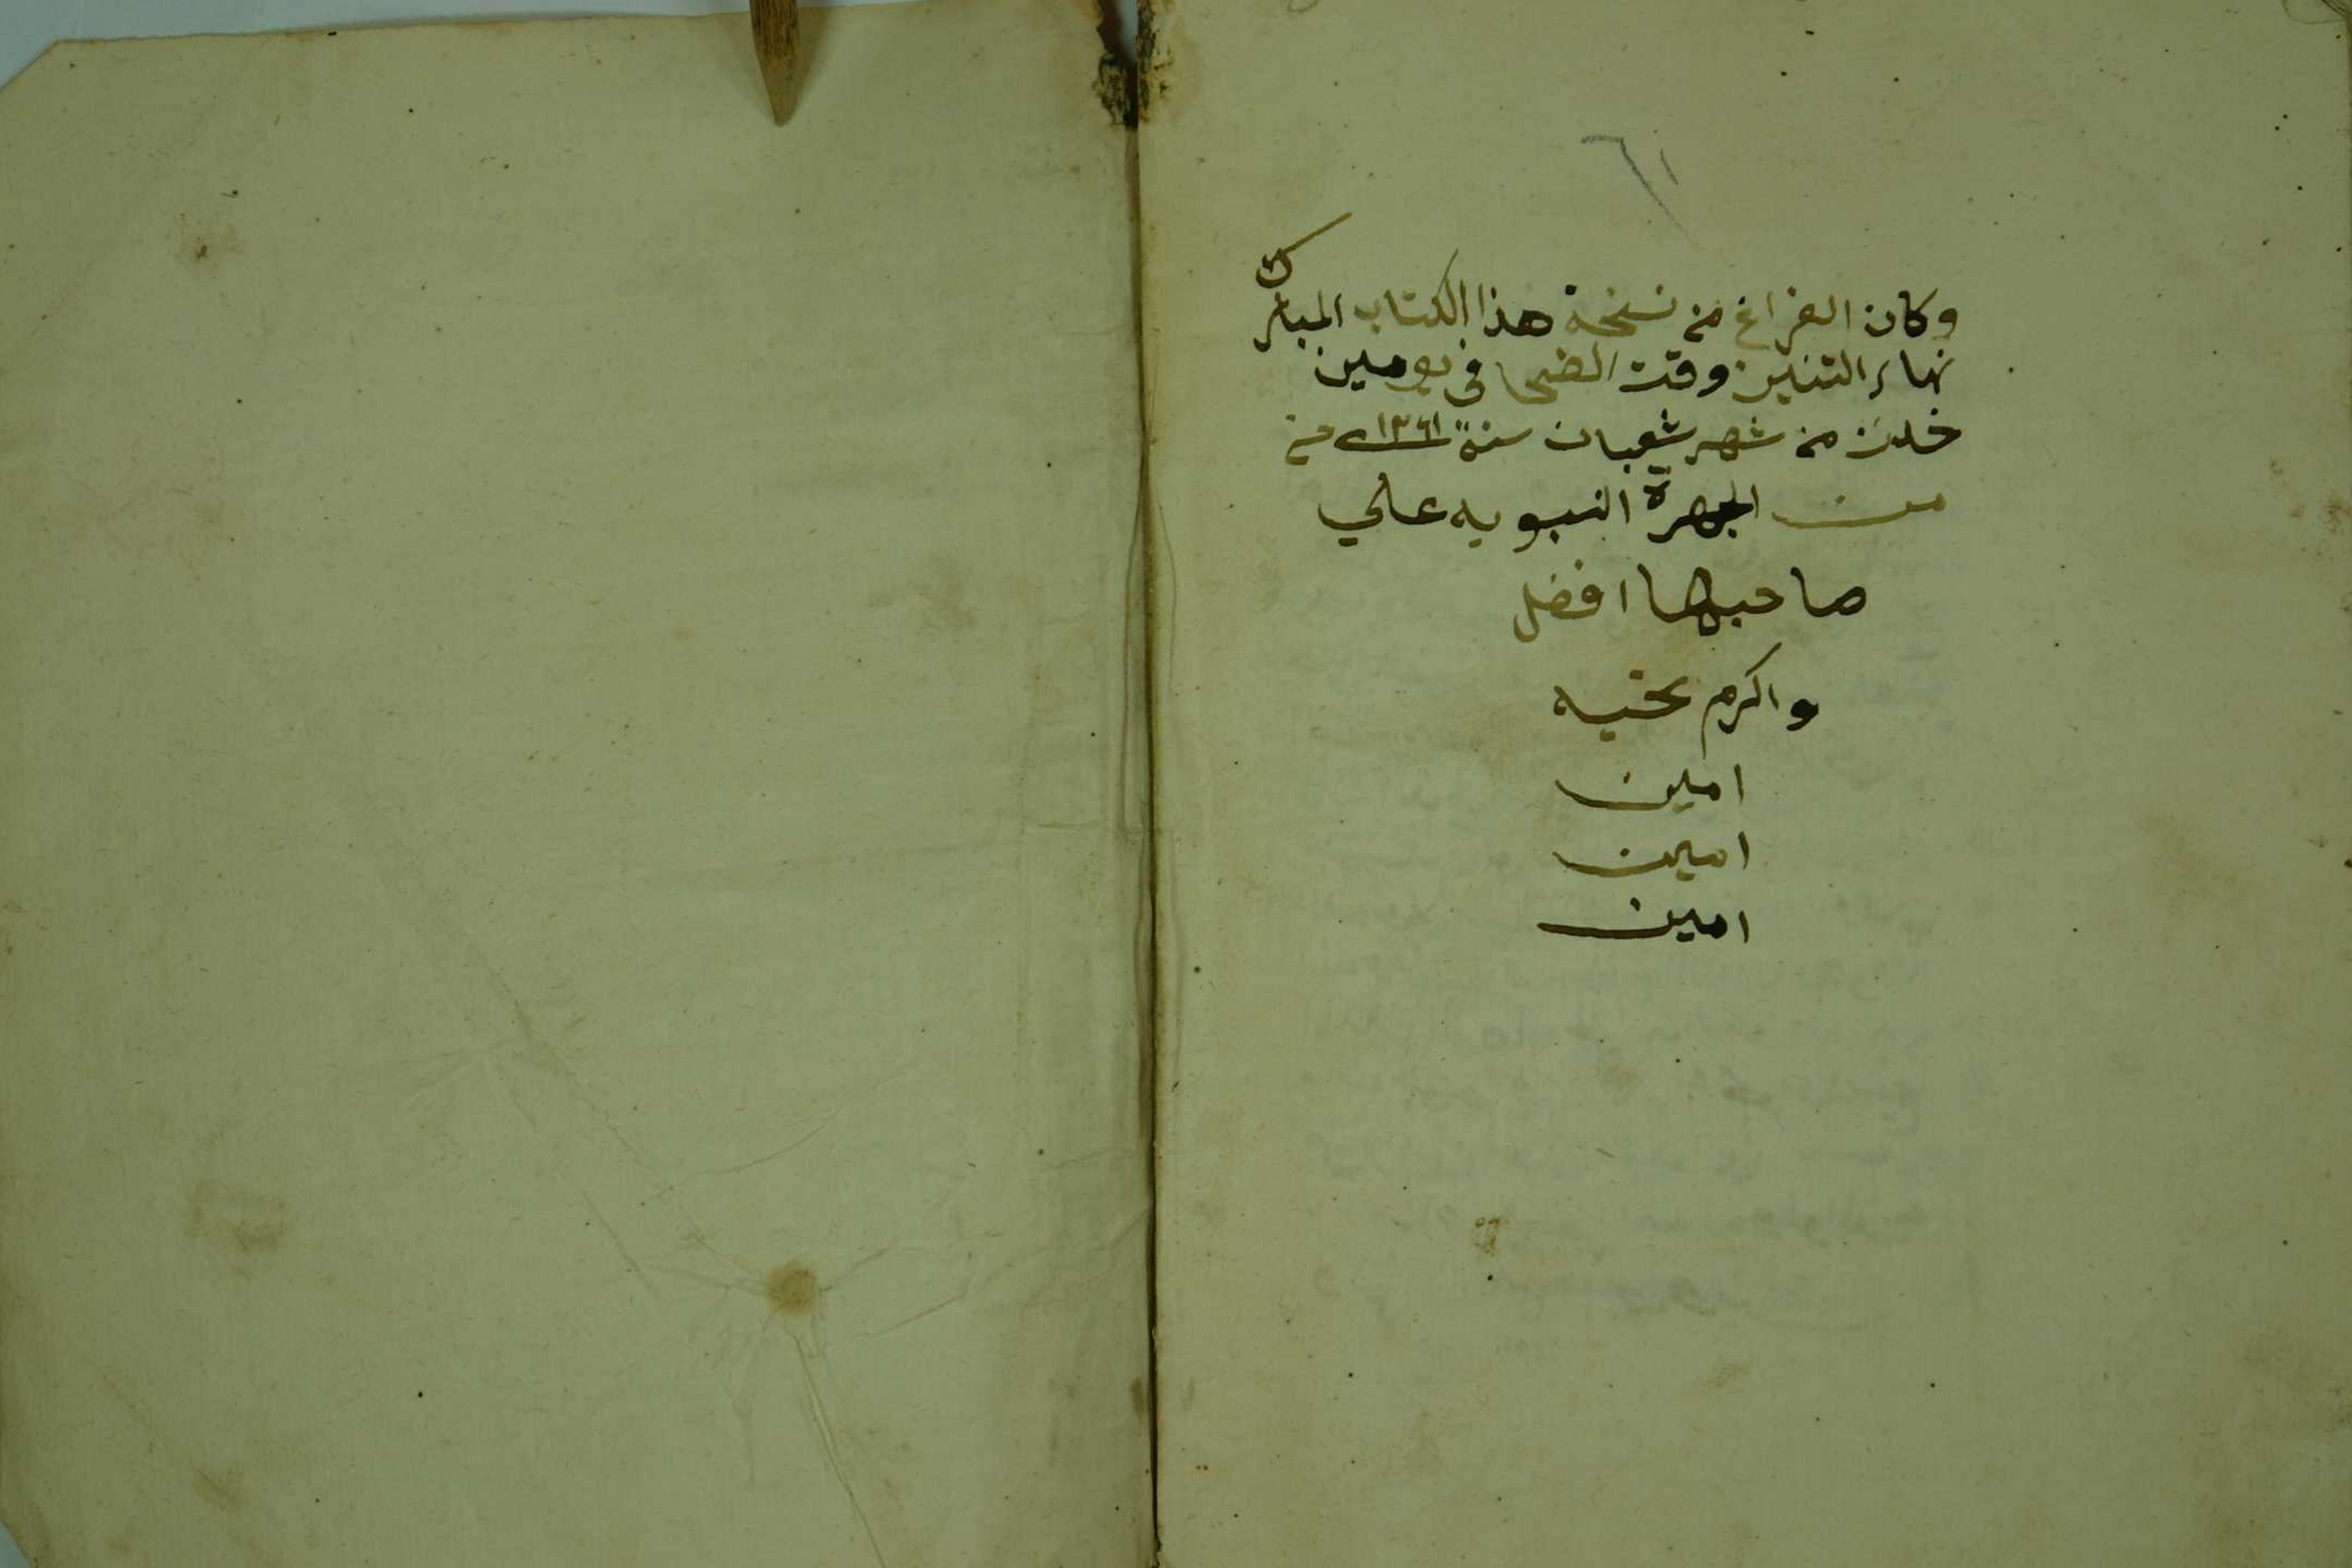 ٦١
وكان الفراغ من نسخة هذا الكتاب المبارك
نهار التنين وقت الضحا في يومين
خلت من شهر شعبان سنة ١٣٦١ من
من الهجرة النبويه علي
صاحبها افضل
واكرم تحيه
امين
امين
امين